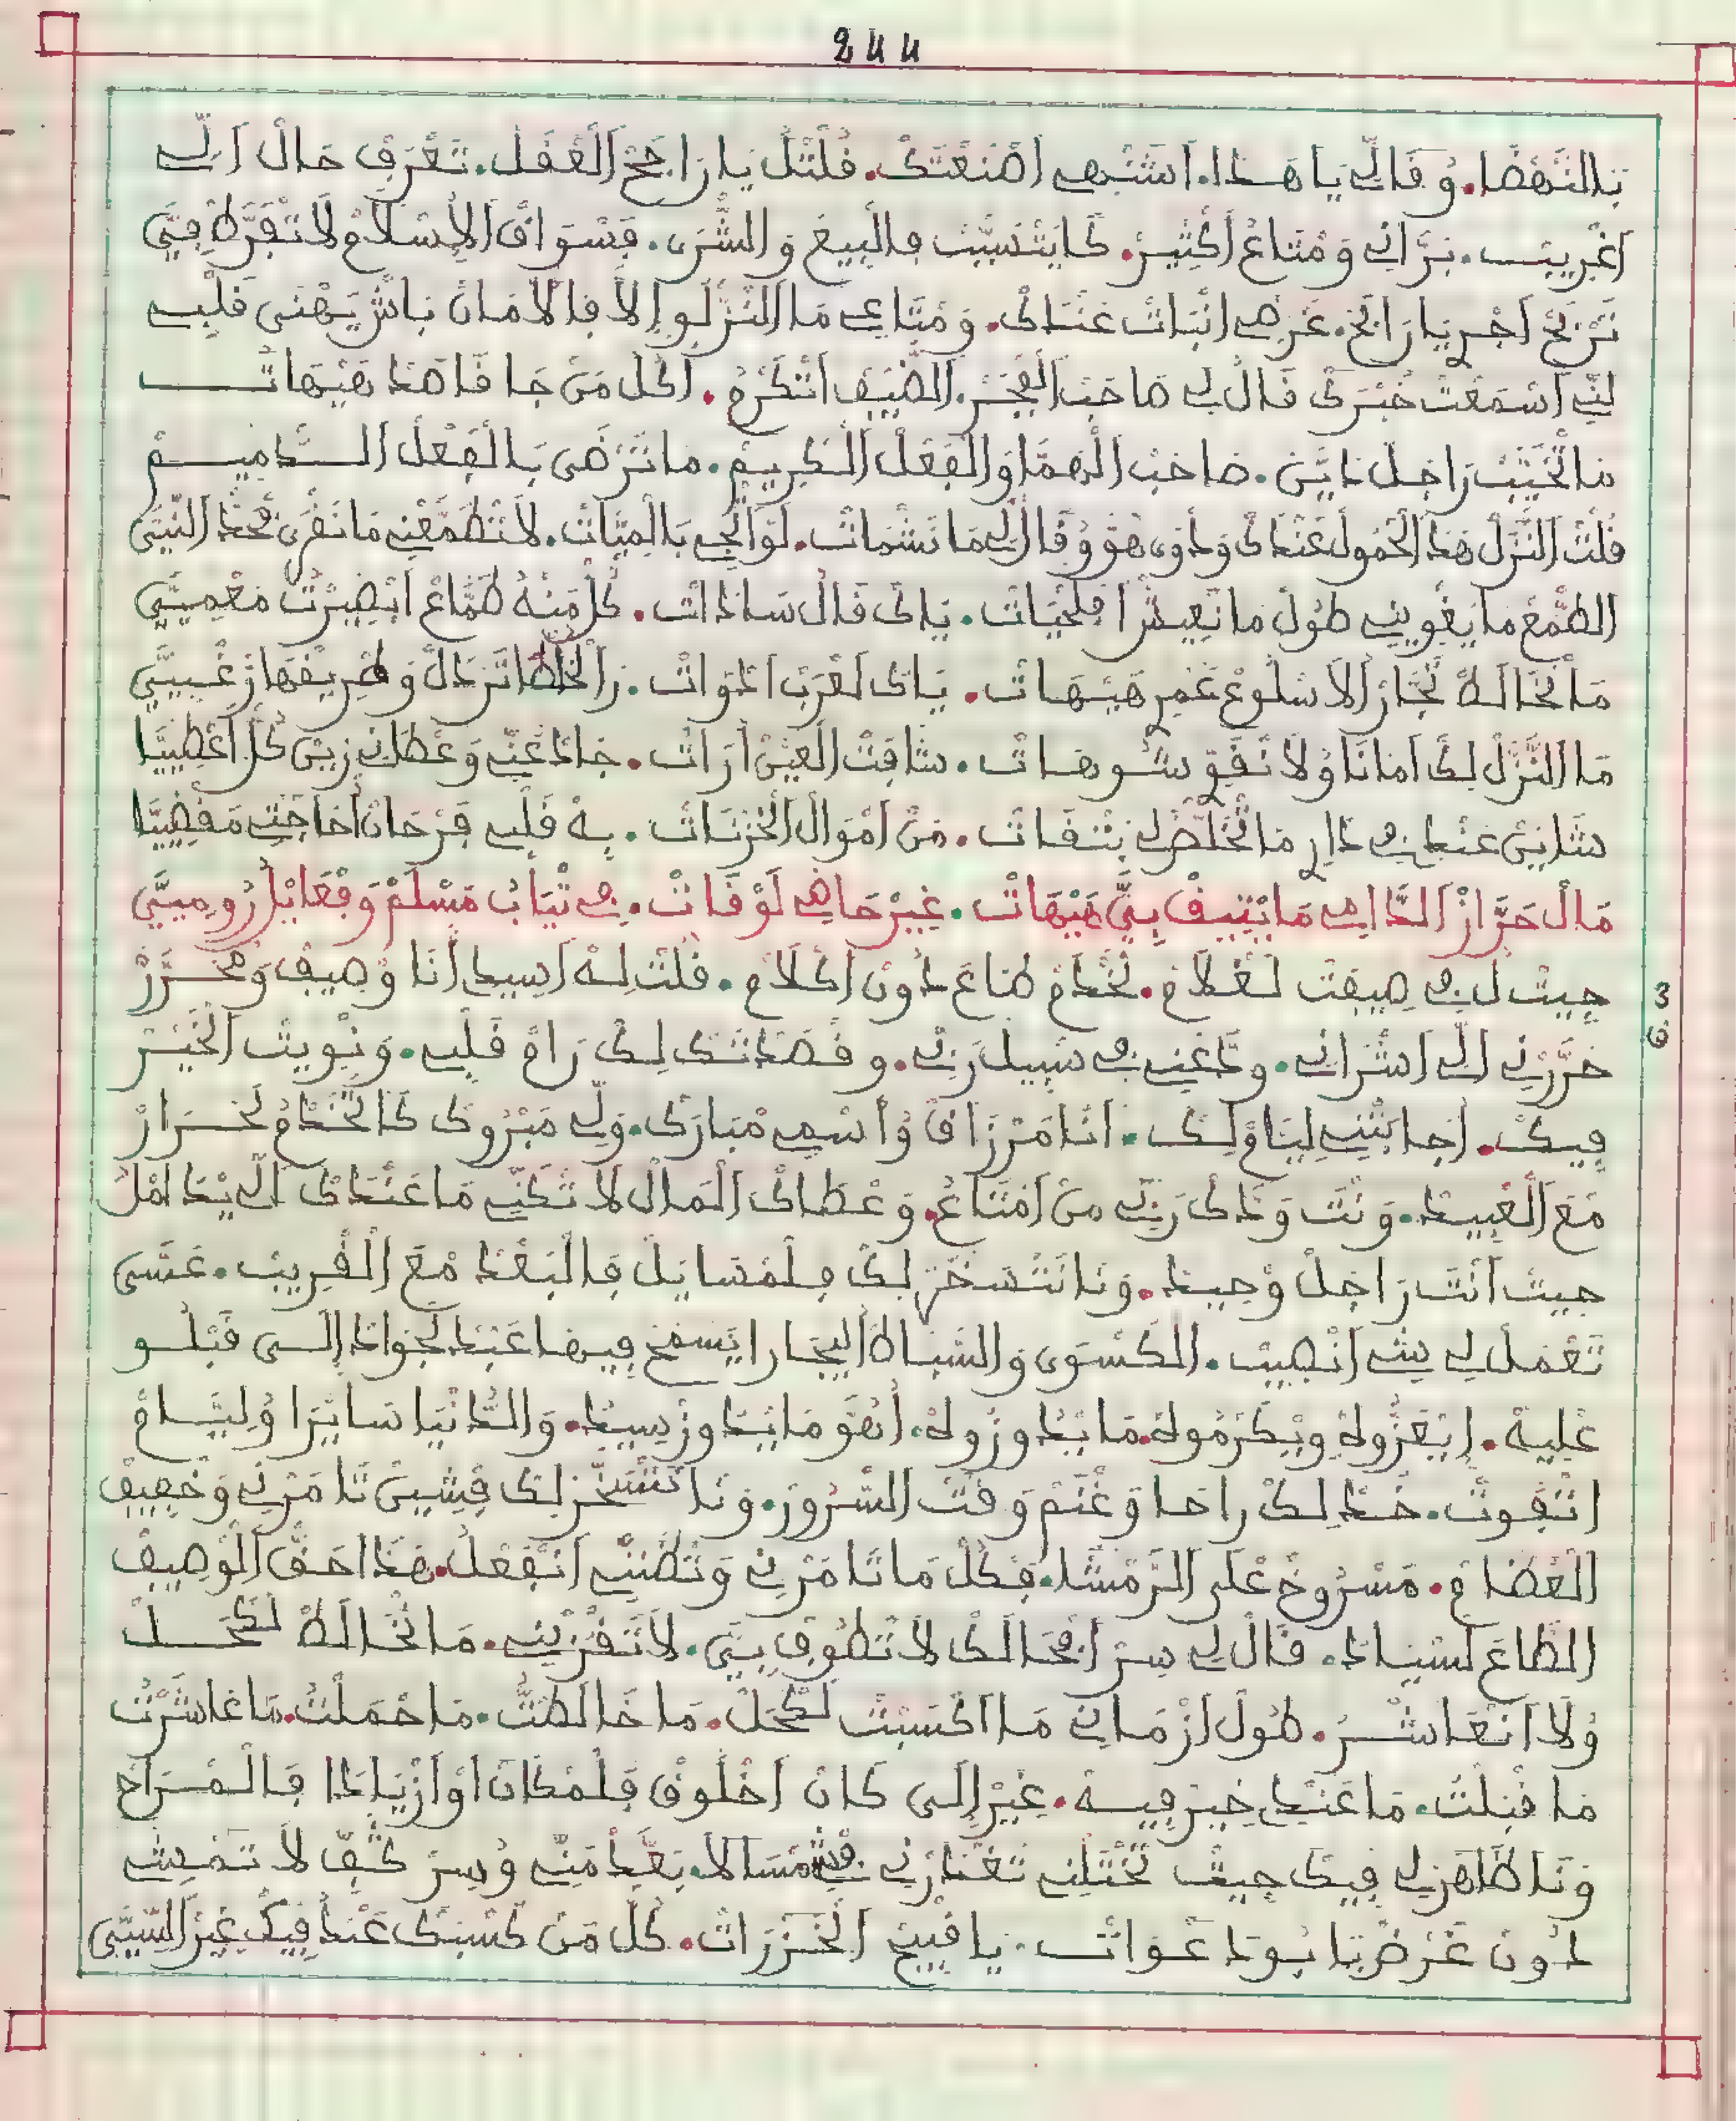 244
بالنهضا. وقال لي يا هذا. اشتهى اصنعتك. قلتل يا راجح العقل. تعرف حال الي
اغريب. براني ومتاع اكثير. كايتسبب فالبيع والشرى. فسواق الاسلام لا تفرط فيى
تربح اجر يا رابح. غرضي انبات عندك. ومتاعي ما النزلو إلا فالامان باش يهنى قلبي
لني اسمعت خبرك قال لي صاحب الفجر. الضيف اتكرم. اكل من جا فاهذا هيهات
ما تخيب راجل داين. صاحب الهما والفعل الكريم. ما ترضى بالفعل الدميم
قلت النزل هذا الحمول عندك ودوى هو وقال لي ما نشمات. لو اتجي بالميات. لا تطمعني ما نقرى محد النيتى
الطمع ما يغويني طول ما نعيش افلحيات. ياك قال سادات. كل منه طماع ابصيرت معميى
ما نخالط تجار ألا سلوع غمر هيهات. ياك لعرب ادوات. را لخلطا تردال وطريقها زغبيى
ما النزل لك امانا ولا نقو سوهات. شافت العين ارات. جاد عني وعطاني زين كل اعطييا
شاين عندي في داري ما تخلصلي بتفات. من اموال الخزنات. به قلبي فرحان أحاجتي مقضييا
مال حراز الدامي ما يتيف بيى هيهات. غير حاضي لوفات. في تياب مسلم وفعايل روميى
جيت ل في صيفت لغلام. لخدام طاع دون اكلام. قلت له اسيدي أنا وصيف ومحرر
3
حررني الي اشراني. ودعني في سبيل ربي. وقصدتك لك رام قلبي. ونويت الخير
6
فيك. أجابتني ليام لك. انا مرزاق وأسمي مبارك. ولي مبروك كا لخدم لحرار
مع العبيد. ونت وداك ربي من امتاع. وعطاك المال لا تكني ما عندك الي يدامل
حيت انت راجل وحيد. ونا نتسخر لك فلمسايل فالبعد مع القريب. عسى
تعمل لي شي انصيب. الكسوى والشباط اليجارا يسمح فيها عبد لجواد إلى قبلو
عليه. ايعزوله ويكرموله. ما يدوزوله. أهو ما يدوز سيد. والدنيا سايرا وليام
اتفوت. خد لك راحا وغنم وقت السرور. ونا نتسخر لك فشين تامرني وخفيف
العضام. مسروح على الرمشا. فكل ما تامرني وتظني انفعل. هذا حق الوصيف
الطاع لسياد. قال لي سر افحالك لا تطوف بيى. لا تقربني. ما نخالط لكحل
ولا انعاشر. طول ازماني ما اكسبت لكحل. ما خالطت. ما حملت. ما عاشرت
ما قبلت. ما عندي خير فيه. غير إلى كان اخلوق فلمكان أو ازيادا فالمراح
ونا ظاهرلي فيك جيت تختلني تغدرني في مسالا. بعد مني وسر كف لا تمشي
دون غرض يا بودعوات. يا قبيح الخزرات. كل من كسبك عند فيك غير السيى